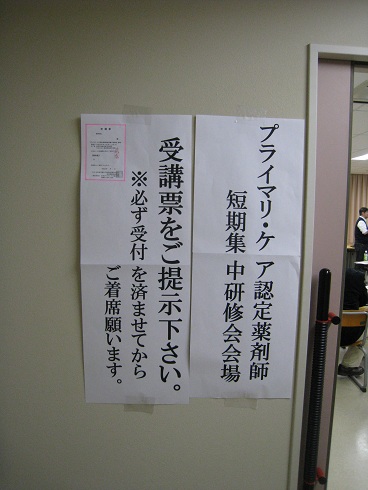 プライマリ・ケア認定薬剤師
短期集中研修会会場
受講票をご提示下さい。
※必ず受付を済ませてから
ご着席願います。